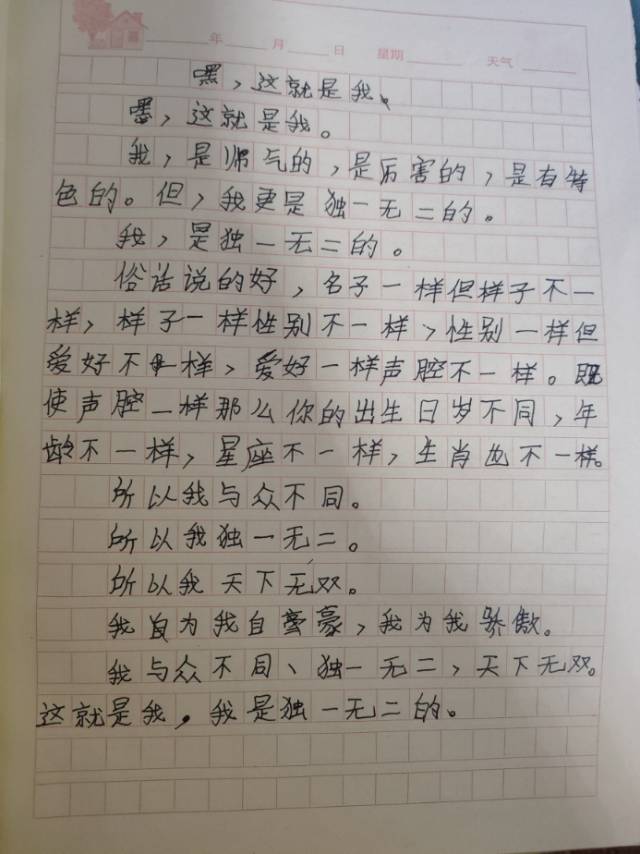 年 月 日 星期 天气
嘿，这就是我。
嘿，这就是我。
我，是帅气的，是厉害的，是有特
色的。但，我更是独一无二的。
我，是独一无二的。
俗话说的好，名子一样但样子不一
样，样子一样性别不一样，性别一样但
爱好不一样，爱好一样声腔不一样。既
使声腔一样那么你的出生日岁不同，年
龄不一样，星座不一样，生肖也不一样。
所以我与众不同。
所以我独一无二。
所以我天下无双。
我为我自豪，我为我骄傲。
我与众不同、独一无二，天下无双。
这就是我，我是独一无二的。